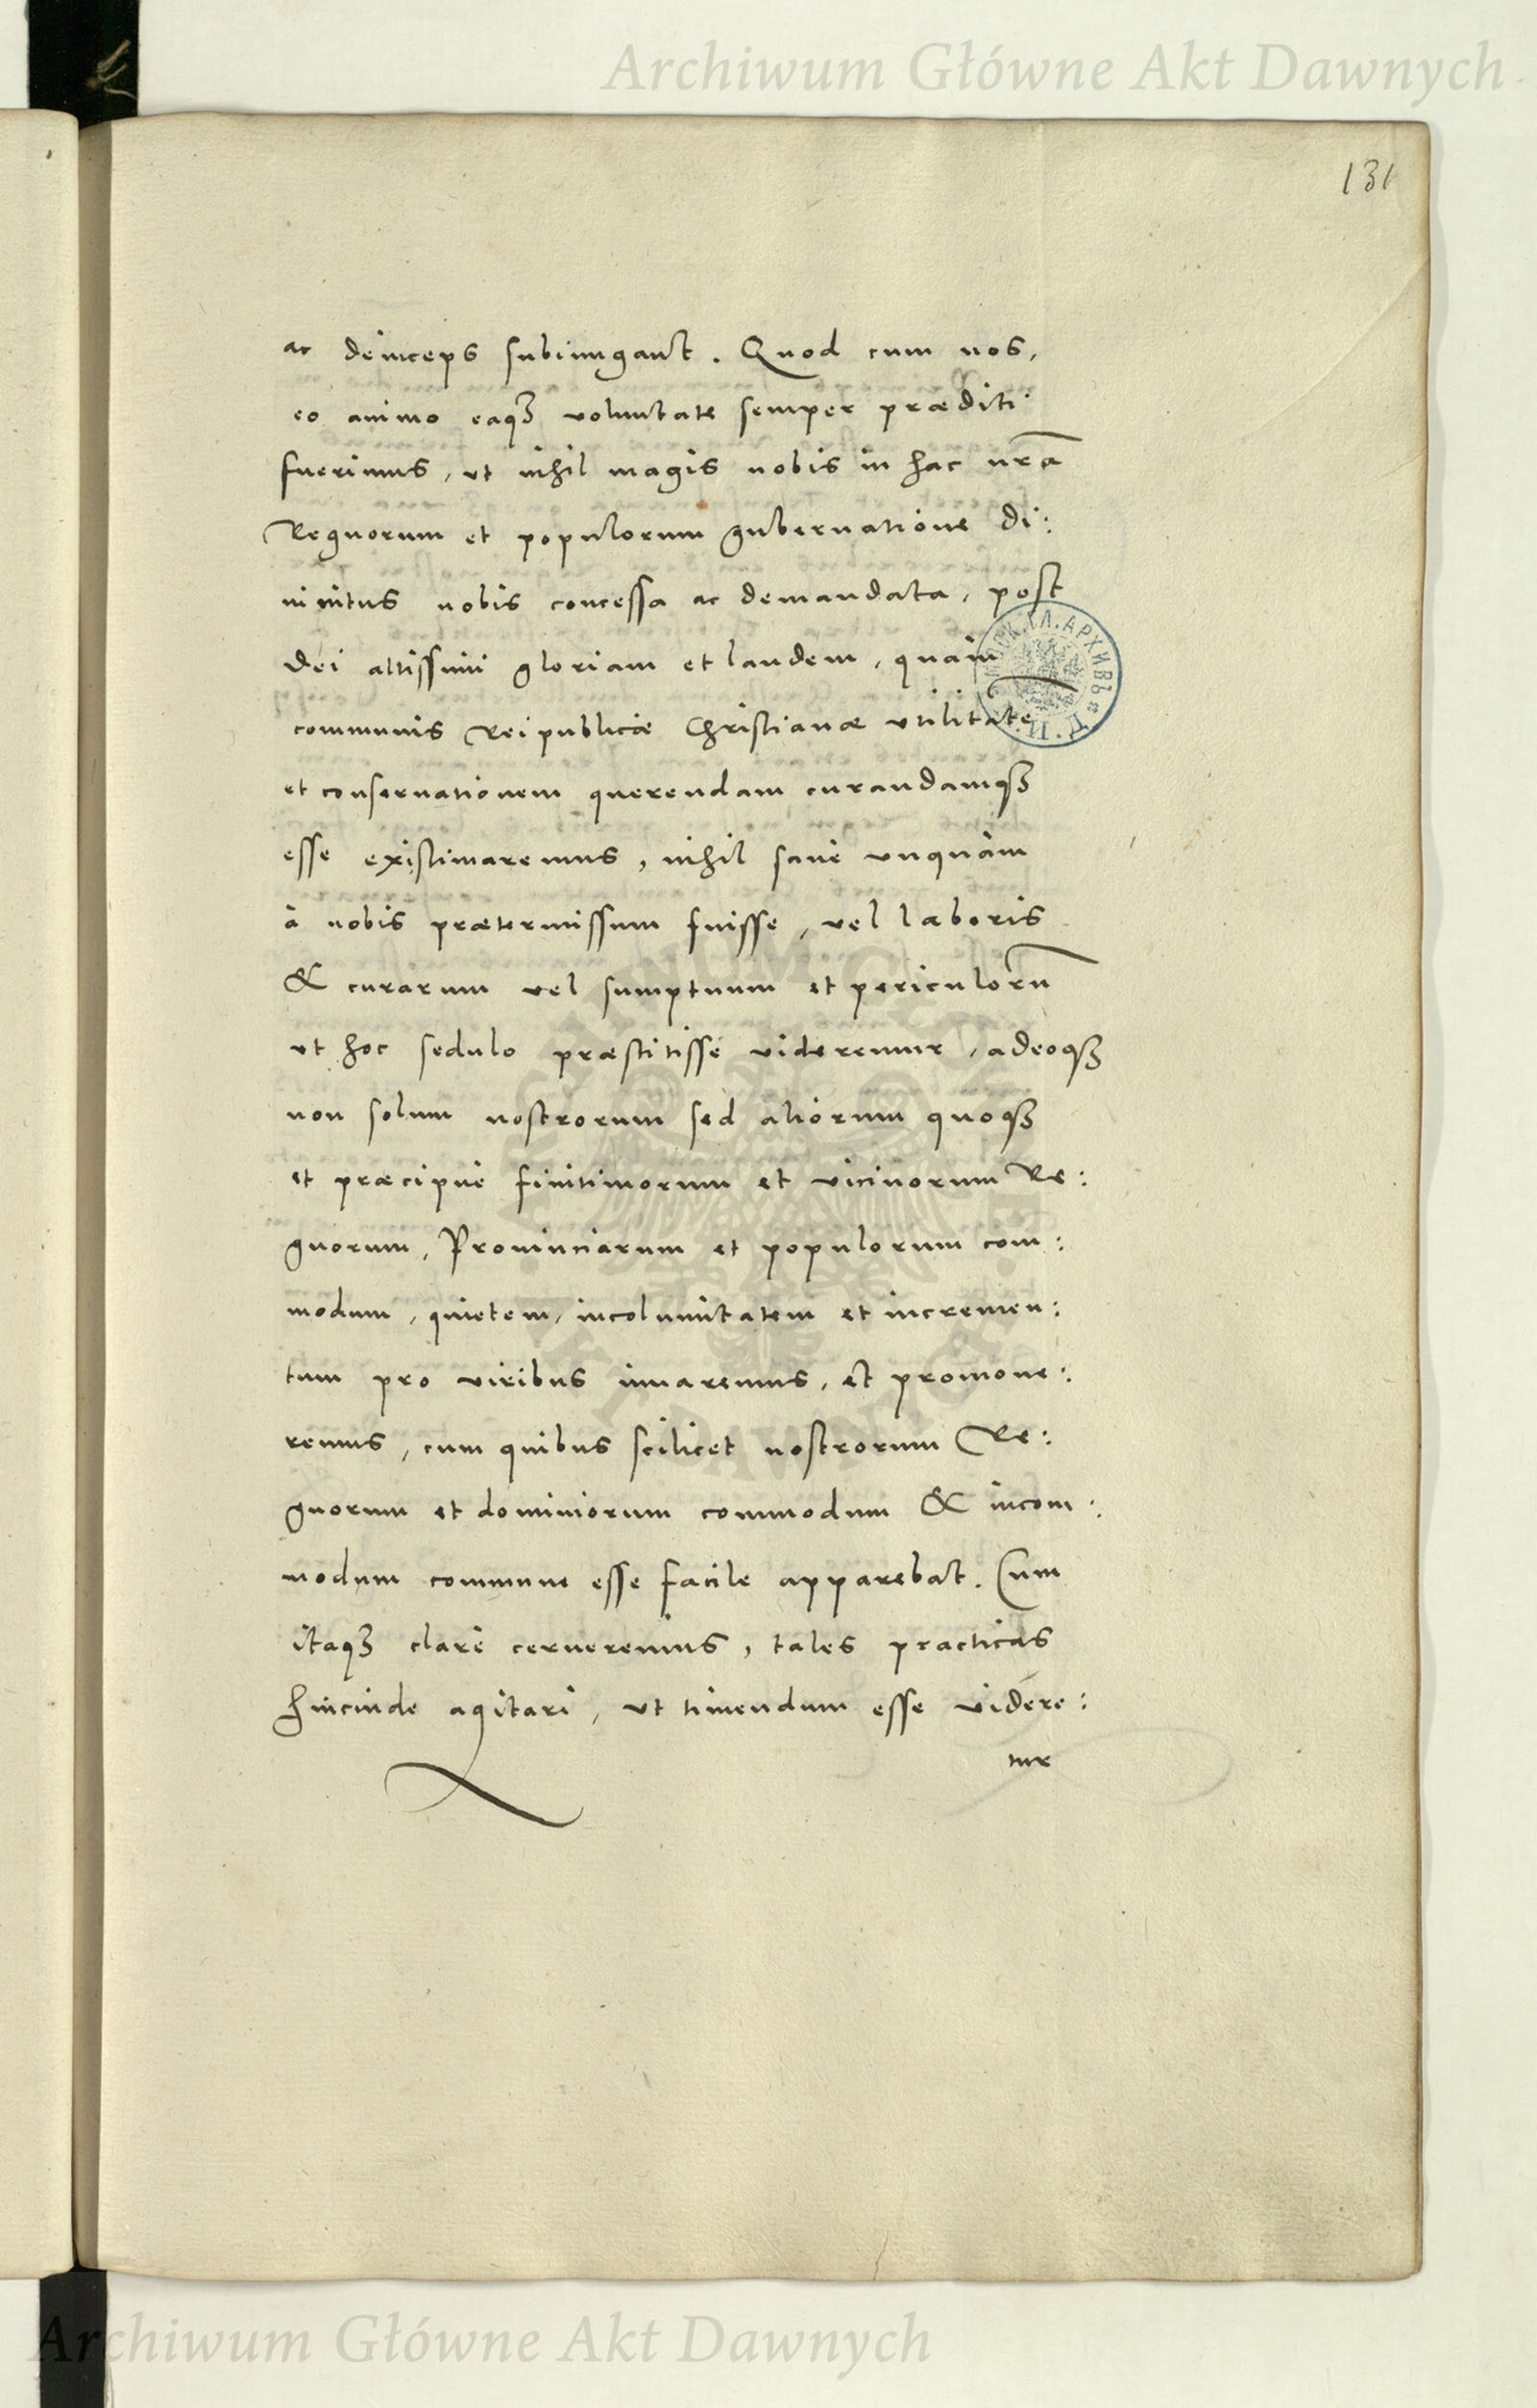 Archiwum Główne Akt Dawnych
131
ac deinceps subiungant. Quod cum nos,
eo animo eaqꝫ voluntate semper præditi
fuerimus, ut nihil magis nobis in hac nr̃a
Regnorum et populorum gubernatione di:
uinitus nobis concessa ac demandata, post
Dei altissimi gloriam et laudem, quam
communis Reipublicæ Christianæ utilitate
et conseruationem querendam curandamqꝫ
esse existimaremus, nihil sanè unquam
à nobis prætermissum fuisse, vel laboris
& curarum vel sumptuum et periculorũ
ut hoc sedulo præstitisse videremur, adeoqꝫ
non solum nostrorum sed aliorum quoqꝫ
et præcipuè finitimorum et vicinorum Re:
gnorum, Prouinciarum et populorum com:
modum, quietem, incolumitatem et incremen:
tum pro viribus iuuaremus, et promoue:
remus, cum quibus scilicet nostrorum Re:
gnorum et dominiorum commodum & incom:
modum commune esse facile apparebat. Cum
itaqꝫ clarè cerneremus, tales practicas
hincinde agitari, ut timendum esse videre:
tur
Archiwum Główne Akt Dawnych